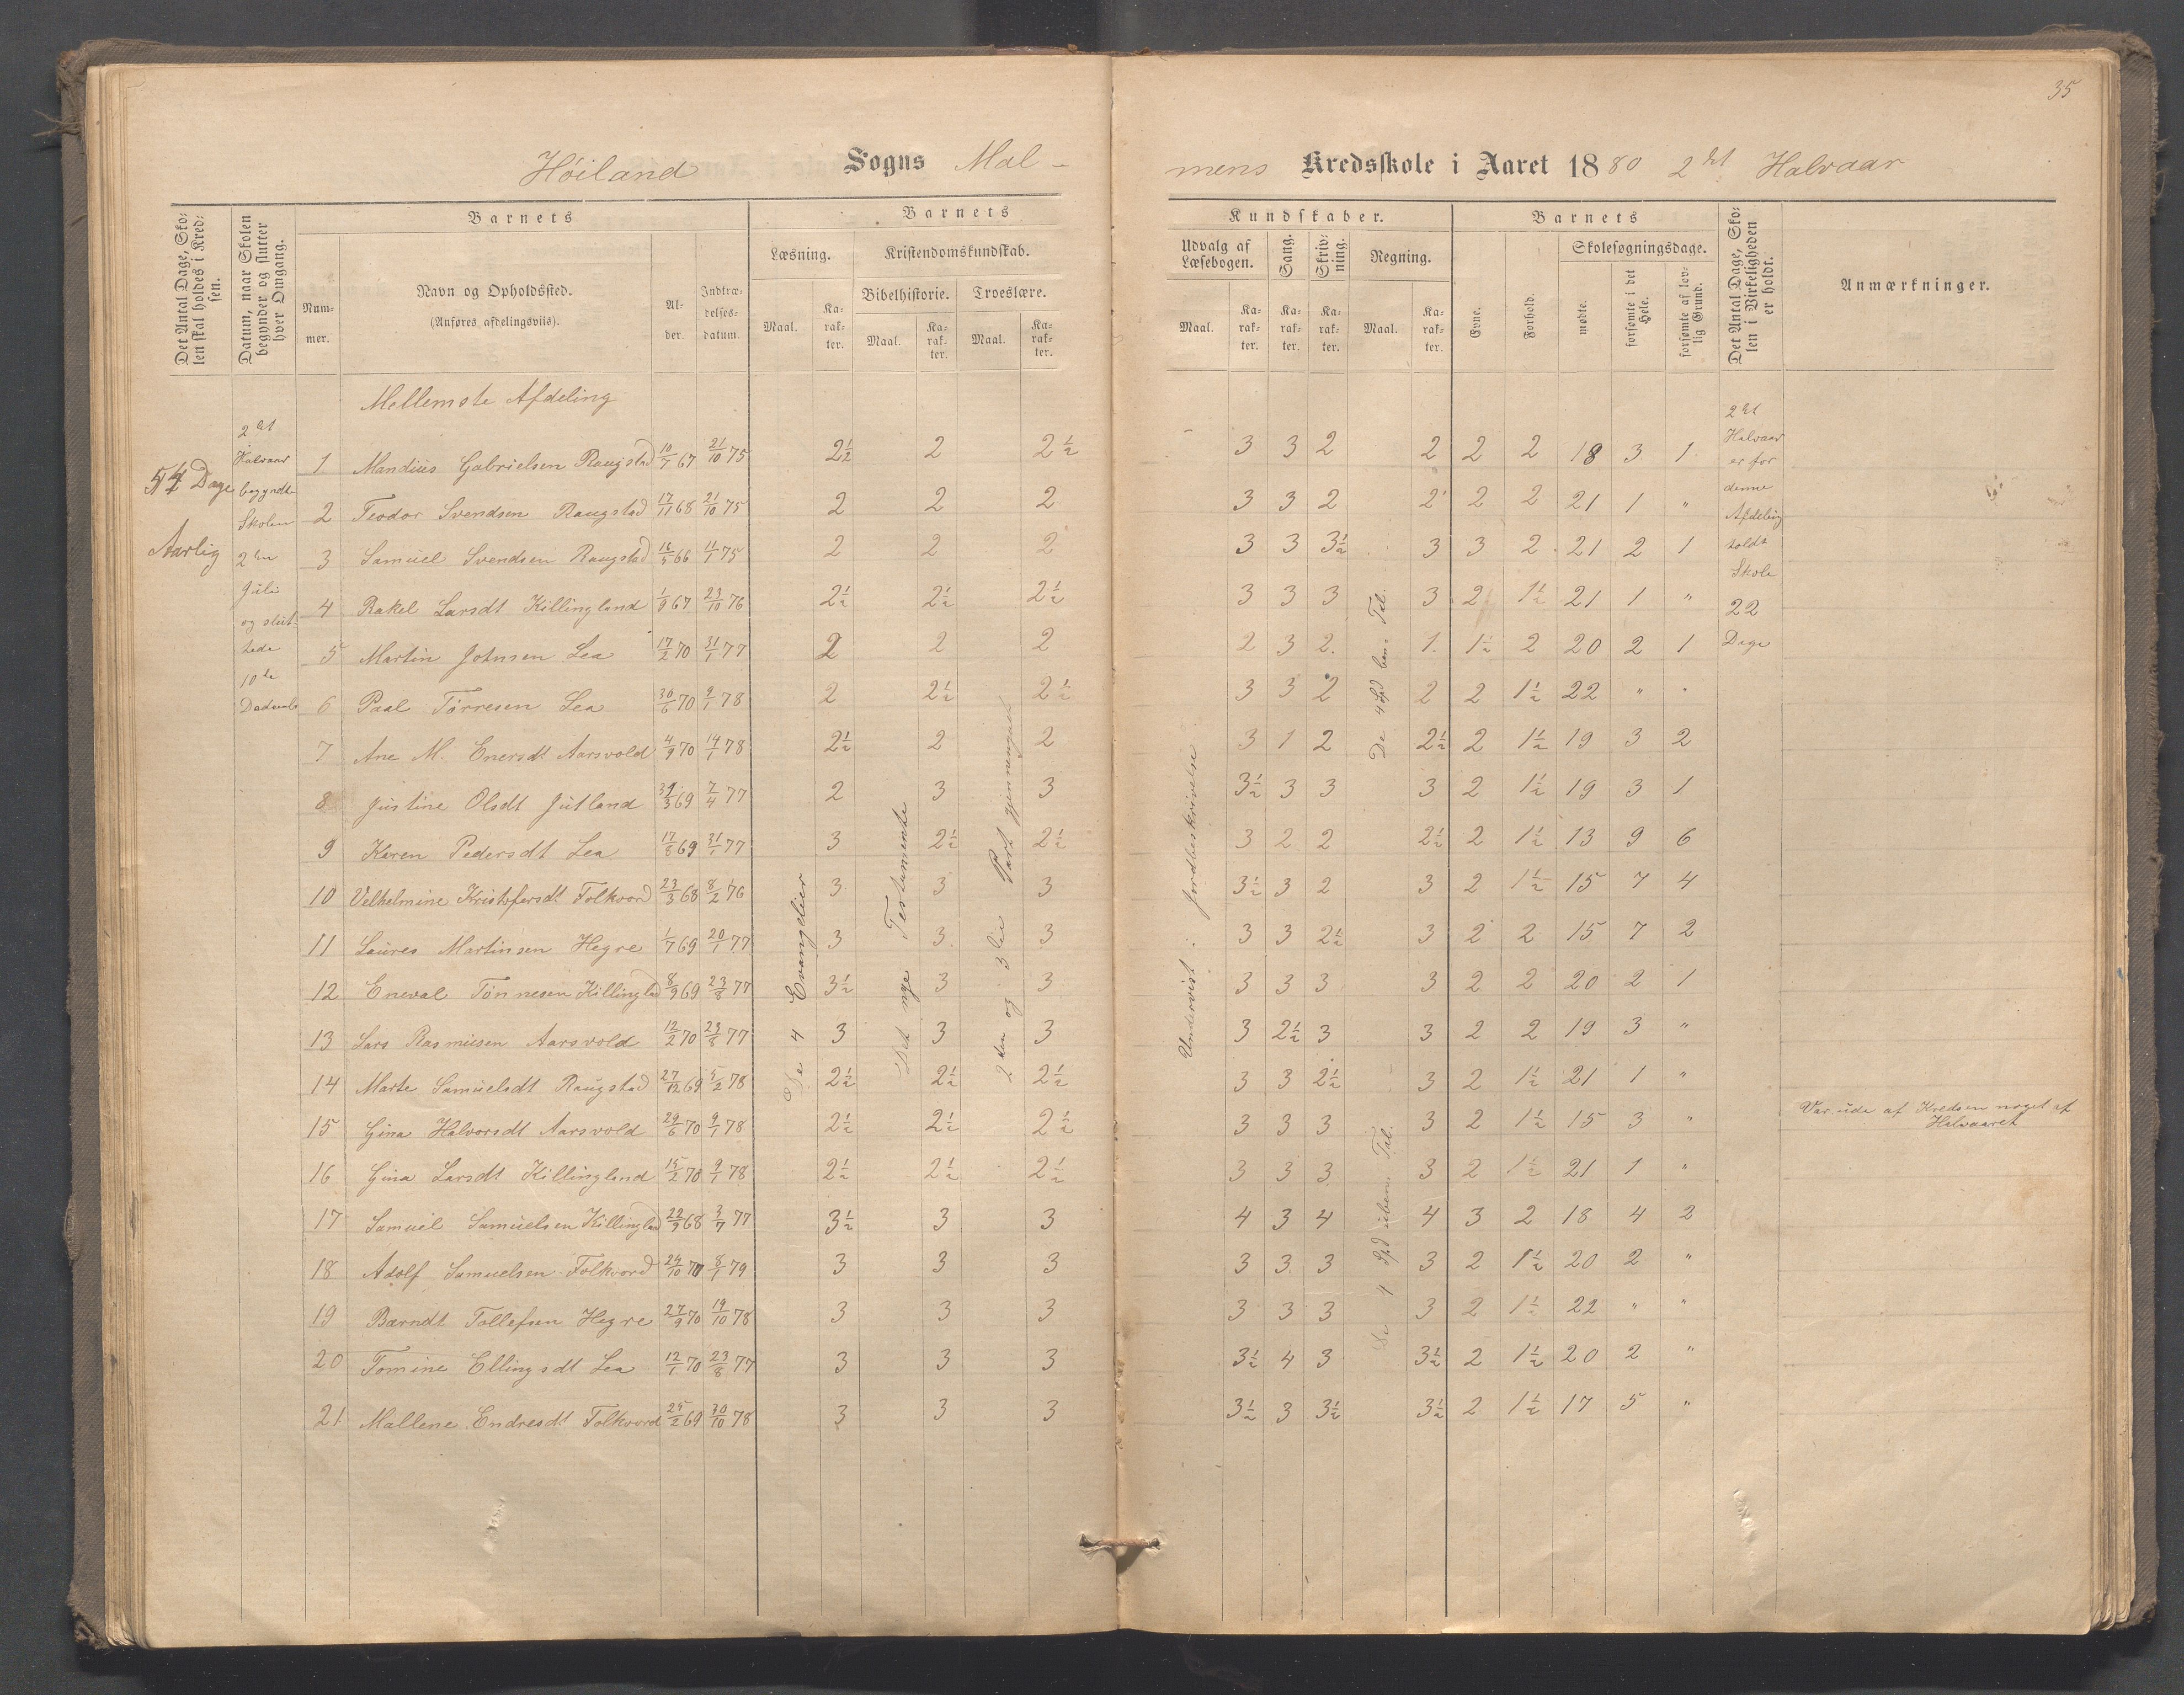 35
Høiland Sogns Mal-
mens Kredsskole i Aaret 1880 2det Halvaar
Det Antal Dage, Skolen skal holdes i Kredsen.
Datum, naar Skolen begynder og slutter hver Omgang.
Barnets
Nummer.
Navn og Opholdssted.
(Anføres afdelingsviis).
Alder.
Indtrædelsesdatum.
Barnets
Læsning.
Kristendomskundskab.
Bibelhistorie. Troeslære.
Maal. Karakter. Maal. Karakter. Maal. Karakter.
Kundskaber.
Udvalg af Læsebogen. Sang. Skrivning. Regning.
Maal. Karakter. Karakter. Karakter. Maal. Karakter.
Barnets
Evne. Forhold.
Skolesøgningsdage.
mødte. forsømte i det Hele. forsømte af lovlig Grund.
Det Antal Dage, Skolen i Virkeligheden er holdt.
Anmærkninger.
Mellemste Afdeling
54 Dage
Aarlig
2det
Halvaar
begyndte
Skolen
2den
Juli
og slut-
tede
10de
2det
Halvaar
er for
denne
Afdeling
holdt
Skole
22
Dage
De 4 Evangelier
Det nye Testamente
2den og 3die Part gjennemgaaet
Undervist: Jordbeskrivelse
De 4 Spd ben. Tal.
De 4 Spd uben. Tal.
1 Mandius Gabrielsen Raugstad 10/7 67 21/10 75 2½ 2 2½ 3 3 2 2 2 2 18 3 1
2 Teodor Svendsen Raugstad 17/11 68 21/10 75 2 2 2 3 3 2 2 2 2 21 1 "
3 Samuel Svendsen Raugstad 16/5 66 11/1 75 2 2 2 3 3 3½ 3 3 2 21 2 1
4 Rakel Larsdt Killingland 1/9 67 23/10 76 2½ 2½ 2½ 3 3 3 3 2 1½ 21 1 "
5 Martin Johnsen Lea 17/2 70 31/1 77 2 2 2 2 3 2 1 1½ 2 20 2 1
6 Paal Tørresen Lea 30/6 70 9/1 78 2 2½ 2½ 3 3 2 2 2 1½ 22 " "
7 Ane M. Enersdt Aarsvold 4/9 70 14/1 78 2½ 2 2 3 1 2 2½ 2 1½ 19 3 2
8 Justine Olsdt Jutland 31/3 69 7/4 77 2 3 3 3½ 3 3 3 2 1½ 19 3 1
9 Karen Pedersdt Lea 17/8 69 31/1 77 3 2½ 2½ 3 2 2 2½ 2 1½ 13 9 6
10 Velhelmine Kristofersdt Folkvord 23/3 68 8/2 76 3 3 3 3½ 3 2 3 2 1½ 15 7 4
11 Laures Martinsen Hegre 1/7 69 20/1 77 3 3 3 3 3 2½ 3 2 2 15 7 2
12 Eneval Tønnesen Killinglad 8/9 69 23/8 77 3½ 3 3 3 3 3 3 2 2 20 2 1
13 Lars Rasmusen Aarsvold 12/2 70 23/8 77 3 3 3 3 2½ 3 3 2 2 19 3 "
14 Marte Samuelsdt Raugstad 27/12 69 5/2 78 2½ 2½ 2½ 3 3 2½ 3 2 1½ 21 1 "
15 Gina Halvorsdt Aarsvold 29/6 70 9/1 78 2½ 2½ 2½ 3 3 3 3 2 1½ 15 3 " Var ude af Kredsen noget af
Halvaaret
16 Gina Larsdt Killingland 15/2 70 9/1 78 2½ 2½ 2½ 3 3 3 3 2 1½ 21 1 "
17 Samuel Samuelsen Killinglad 22/9 68 3/7 77 3½ 3 3 4 3 4 4 3 2 18 4 2
18 Adolf Samuelsen Folkvord 24/10 70 8/1 79 3 3 3 3 3 3 3 2 1½ 20 2 "
19 Barndt Tollefsen Hegre 27/9 70 19/10 78 3 3 3 3 3 3 3 2 1½ 22 " "
20 Tomine Ellingsdt Lea 12/1 70 23/8 77 3 3 3 3½ 4 3 3½ 2 1½ 20 2 "
21 Mallene Endresdt Folkvord 25/2 69 30/10 78 3 3 3 3½ 3 3½ 3½ 2 1½ 17 5 "